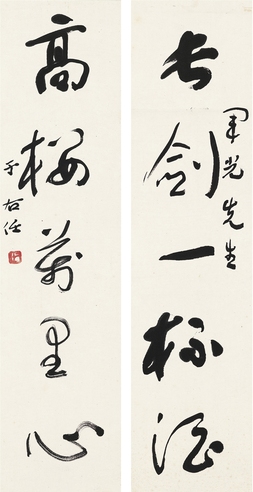 長劍一杯酒
光先生
高樓萬里心
于右任